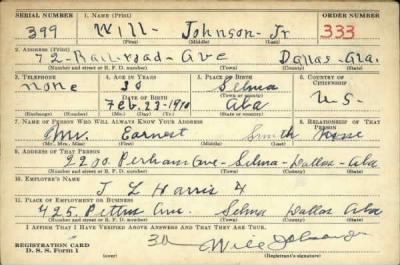 SERIAL NUMBER 1. NAME (Print) ORDER NUMBER
399 Will - Johnson - Jr 333
(First) (Middle) (Last)
2. ADDRESS (Print)
72 - Railroad - ave Dallas - Ala.
(Number and street or R. F. D. number) (Town) (County) (State)
3. TELEPHONE 4. AGE IN YEARS 5. PLACE OF BIRTH 6. COUNTRY OF CITIZENSHIP
none 30 Selma
DATE OF BIRTH (Town or county)
Feb. 23-1910 Ala U S.
(Exchange) (Number) (Mo.) (Day) (Yr.) (State or country)
7. NAME OF PERSON WHO WILL ALWAYS KNOW YOUR ADDRESS 8. RELATIONSHIP OF THAT PERSON
Mr. Earnest Smith
(Mr., Mrs., Miss) (First) (Middle) (Last)
9. ADDRESS OF THAT PERSON
2200 ave - Selma - Dallas - Ala
(Number and street or R. F. D. number) (Town) (County) (State)
10. EMPLOYER'S NAME
J L Harris
11. PLACE OF EMPLOYMENT OR BUSINESS
425 Ave. Selma Dallas Ala
(Number and street or R. F. D. number) (Town) (County) (State)
I AFFIRM THAT I HAVE VERIFIED ABOVE ANSWERS AND THAT THEY ARE TRUE.
REGISTRATION CARD
D. S. S. Form 1 (over) Will Johnson Jr
(Registrant's signature)